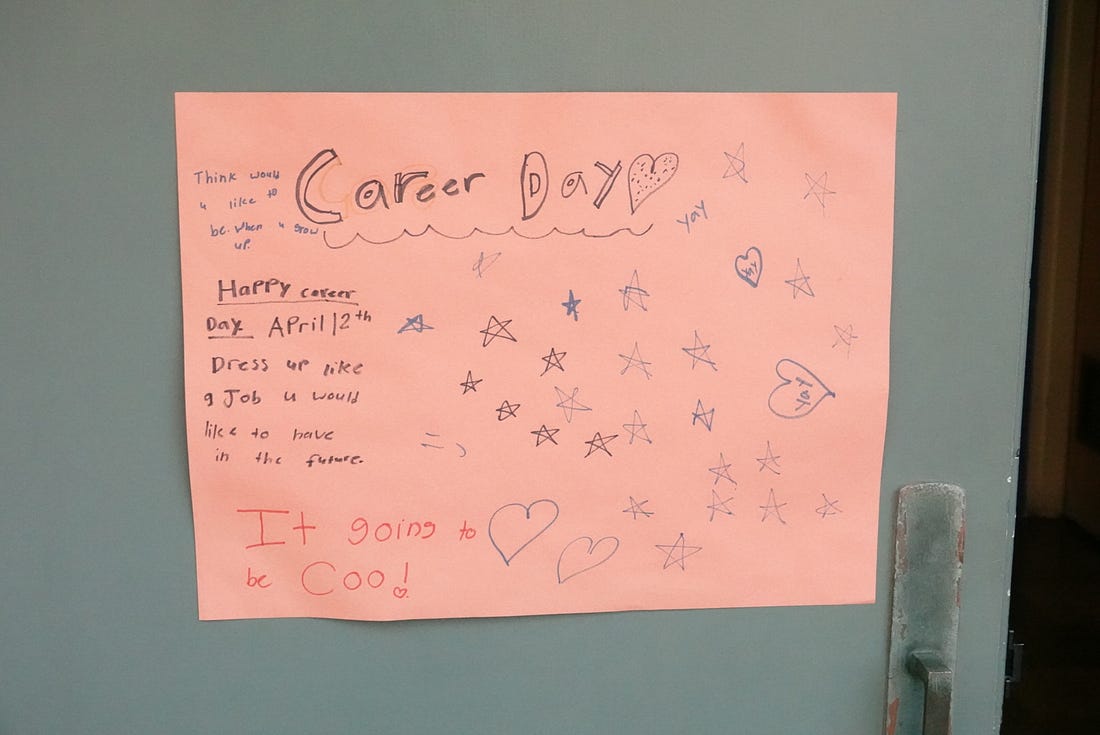 Career Day
Think would
u like to
be. When u grow
up.
yay
Happy career
Day April 12th
Dress up like
a Job u would
like to have
in the future.
yay
It going to
be Coo!